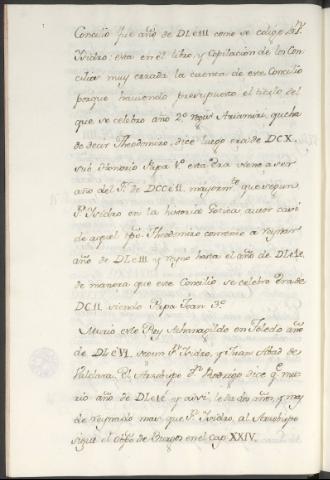 Concilio fue año de DLeIII como se colige de Sn.
Isidro: esta en el libro, y Copilación de los Con-
cilios muy errada la cuenta de este Concilio
porque haviendo presupuesto el titulo del
que se celebro año 2º Regis Ariamiri, que ha
de decir Theodomiro, dice luego era de DCX.
sub Honorio Papa 1º esta Era viene a ser
año del Sr. de mayormte que segun
Sn. Isidro en la historia Gotica autor casi
de aquel tpo. Theodomiro comenzo a reynar
año de DLeIII y reyno hasta el año de
de manera que este Concilio se celebro Era de
DCII siendo Papa Juan 3º.
Murio este Rey Athanagildo en Toledo año
de DLeVI segun Sn. Isidro, y Juan Abad de
Valclara. El Arzobispo Dn. Rodrigo dice qe mu-
rio año de y assi le da dos años, y mas
de reynado mas que Sn. Isidro, al Arzobispo
sigue el Obpo. de Burgos en el cap. XXIV.